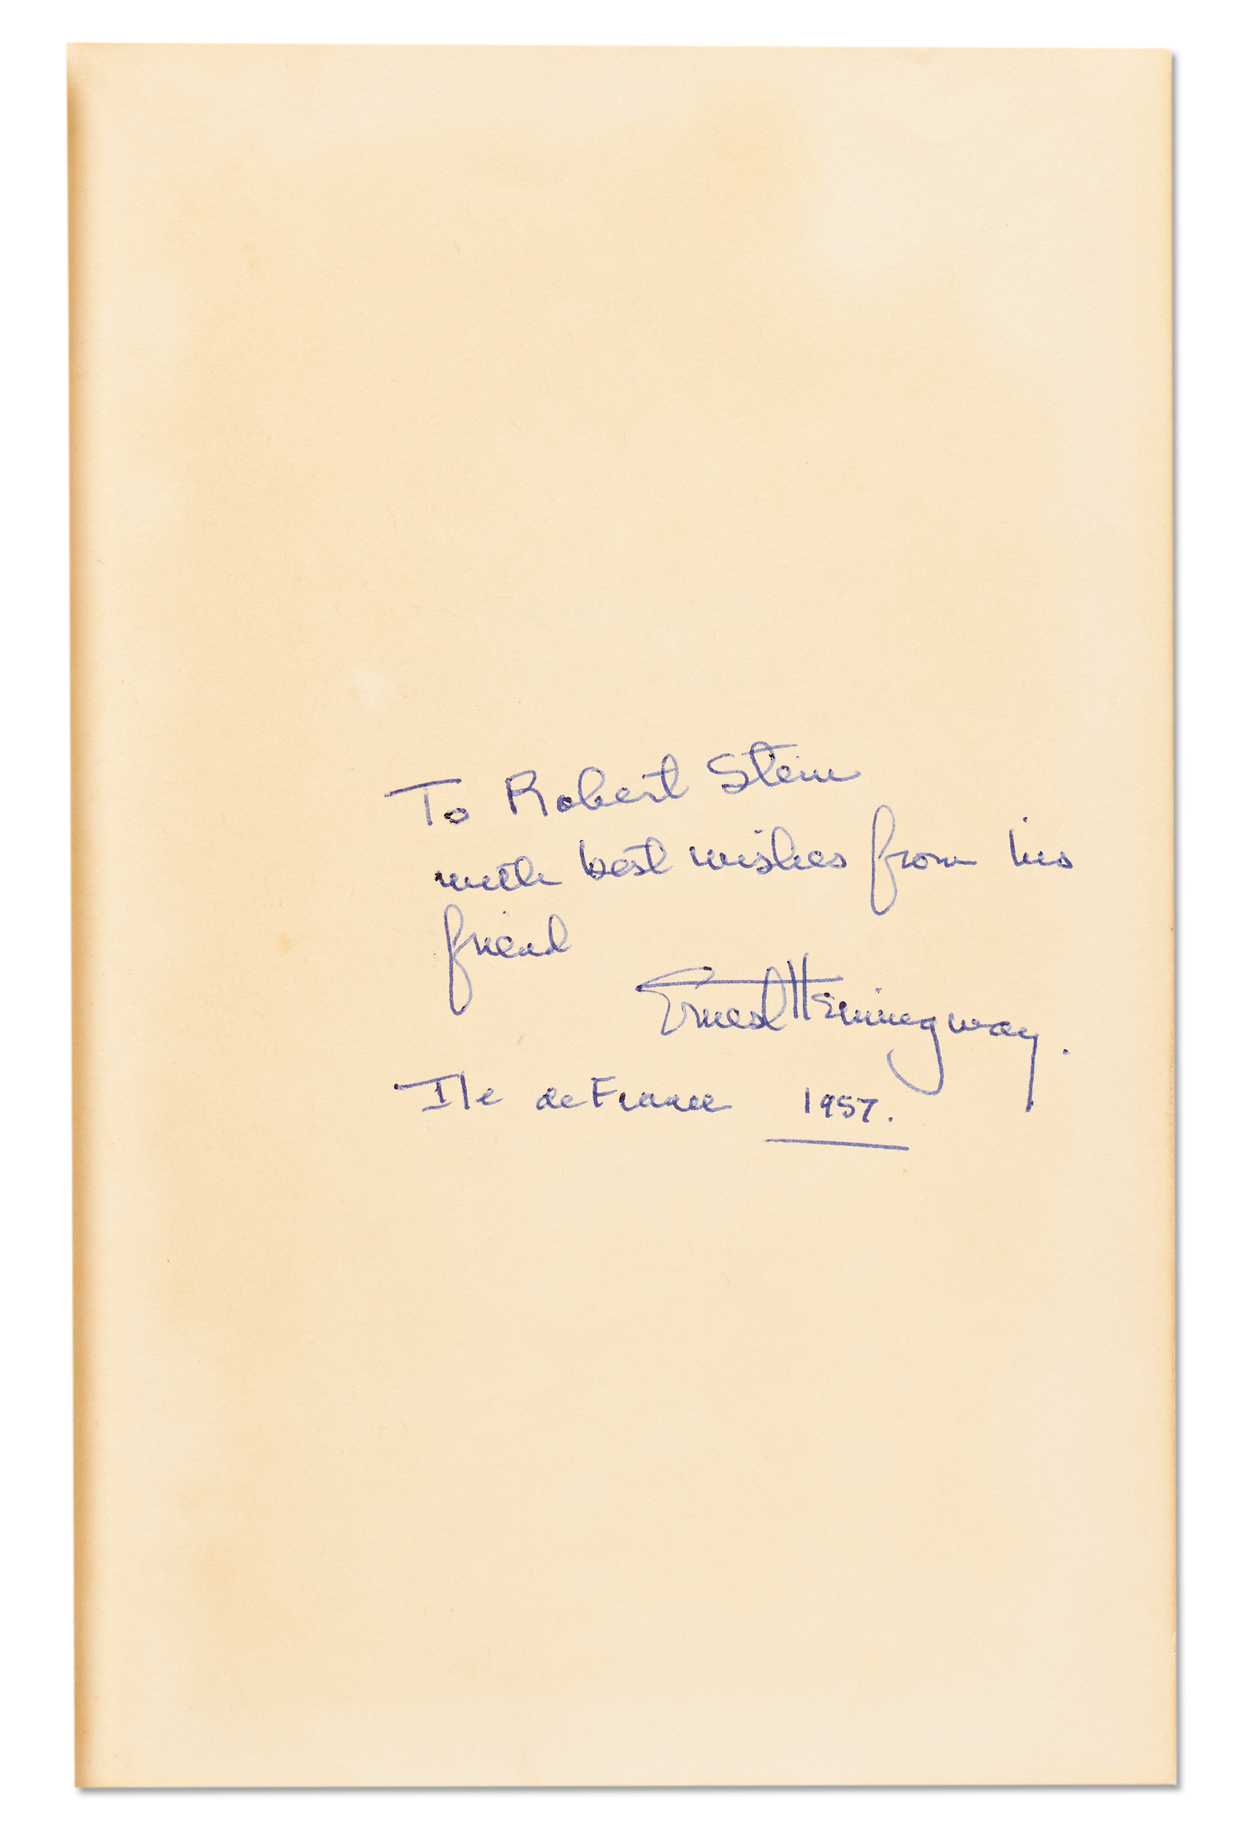 To Robert Stein
with best wishes from his
friend
Ernest Hemingway.
Ile de France 1957.